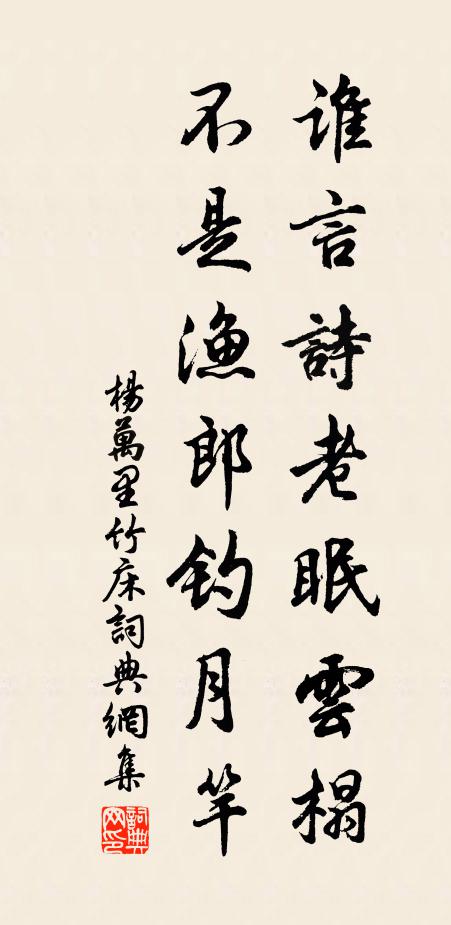 谁言詩老眠雲榻
不是漁郎钓月竿
楊萬里竹床詞典網集
詞典网印